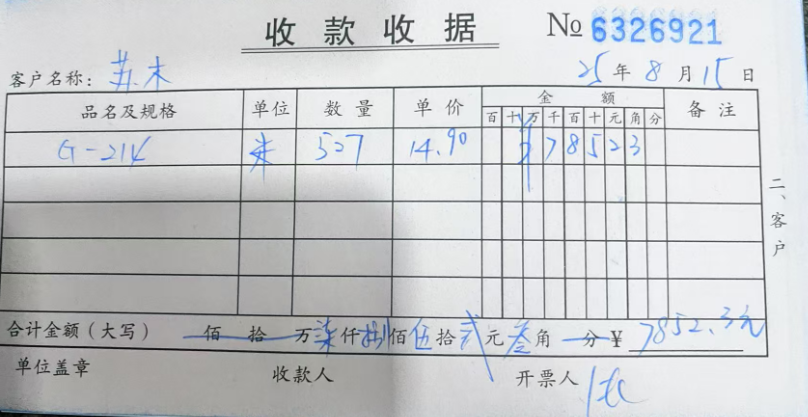 收款收据 № 6326921
客户名称：苏木 25年8月15日
品名及规格 单位 数量 单价 金额 备注
百 十 万 千 百 十 元 角 分
G-214 米 527 14.90 ¥ 7 8 5 2 3
二、客户
合计金额（大写） 佰 拾 万 柒 仟 捌 佰 伍 拾 贰 元 叁 角 分 ¥ 7852.3元
单位盖章 收款人 开票人